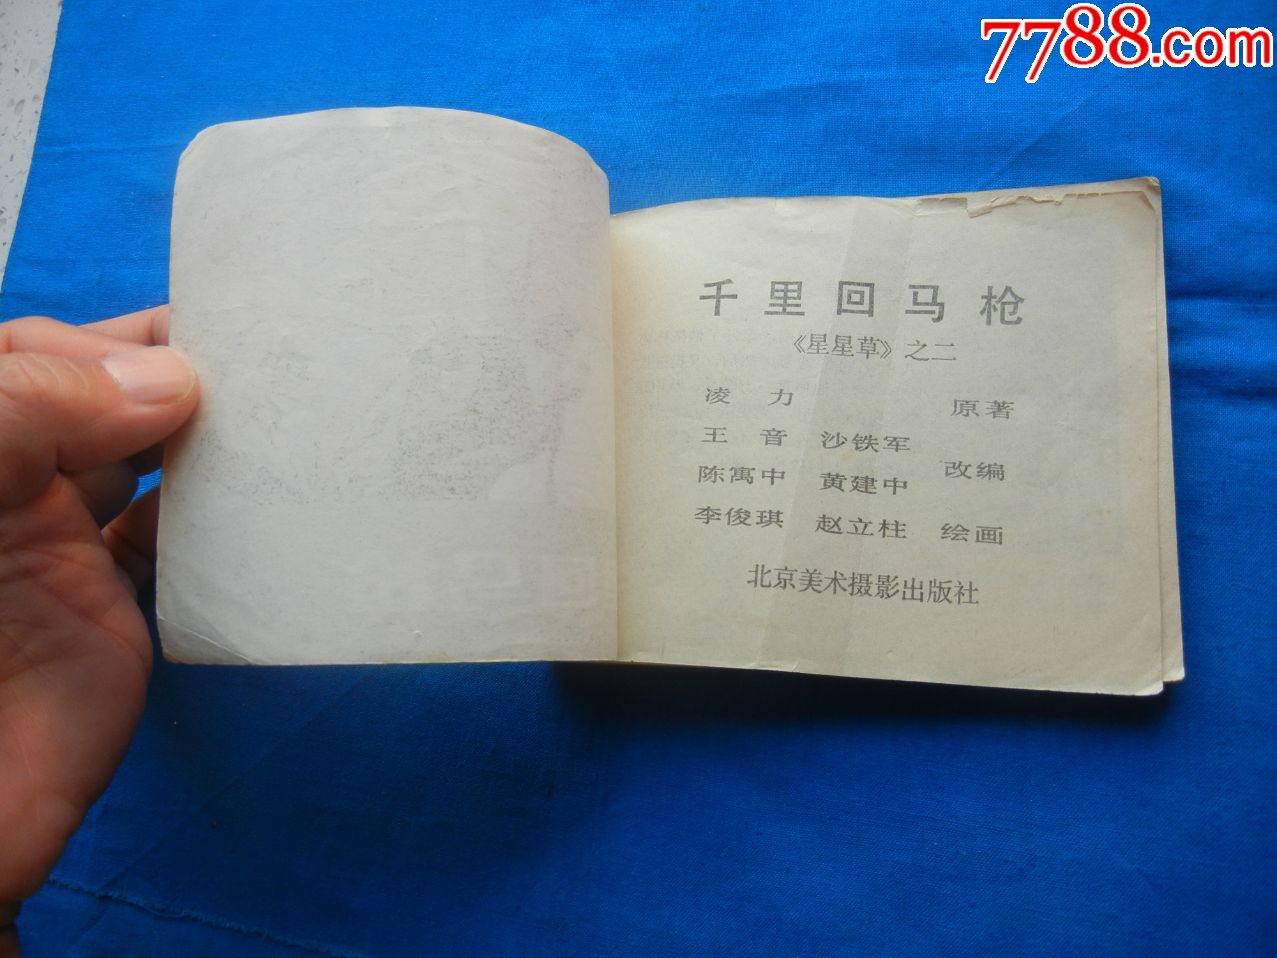 7788.com
千里回马枪
《星星草》之二
凌力 原著
王音 沙铁军
陈寓中 黄建中 改编
李俊琪 赵立柱 绘画
北京美术摄影出版社